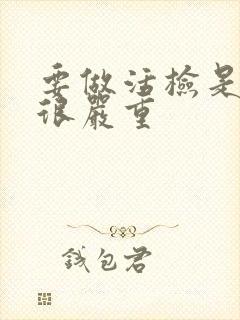 要做活檢是
很嚴重
錢包君